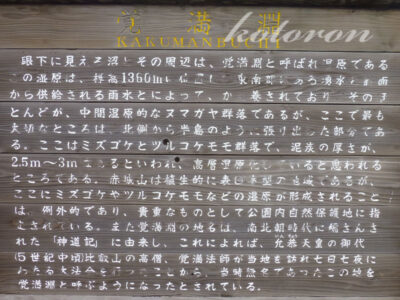 覚満淵
kotoron
KAKUMANBUCHI
眼下に見える沼とその周辺は、覚満淵と呼ばれ湿原である
この湿原は、標高1360m 位置し、東南部 ある湧水と 面
から供給される雨水とによって、 養されており、その
とんどが、中間湿原的なヌマガヤ群落であるが、ここで最も
大切なところは、北側から半島のように張り出た部分であ
る。ここはミズゴケとツルコケモモ群落で、泥炭の厚さが、
2.5m〜3m まであるといわれ、高層湿原化していると思われる
ところである。赤城山は植生的に表日本型の地域であるが、
ここにミズゴケやツルコケモモなどの湿原が形成されること
は、例外であり、貴重なものとして公園内自然保護地に指
定されている。また覚満淵の地名は、南北朝時代に編さんさ
れた「神道記」に由来し、これによれば、允恭天皇の御代
(5世紀中頃)比叡山の高僧、覚満法師が当地を訪れ七日七夜に
わたる大法会を行ったことから、当時無名であったこの地を
覚満淵と呼ぶようになったとされている。